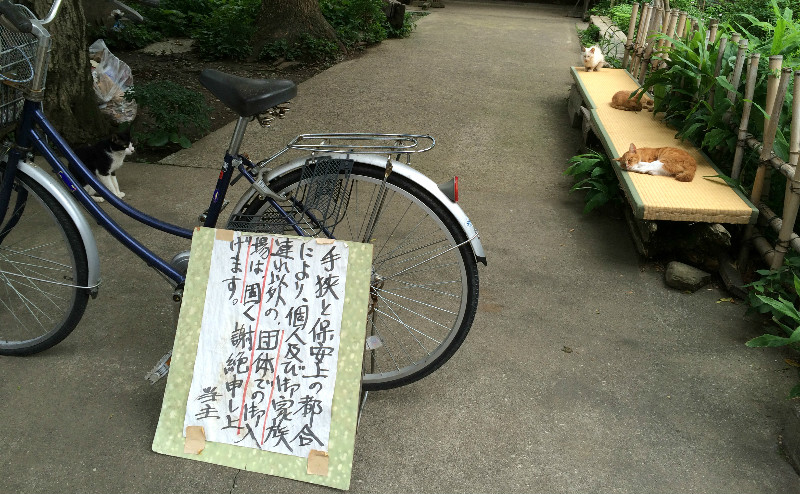 手狭と保安上の都合
により、個人及び御家族
連れ以外の、団体での御入
場は固く謝絶申し上
げます。
当主